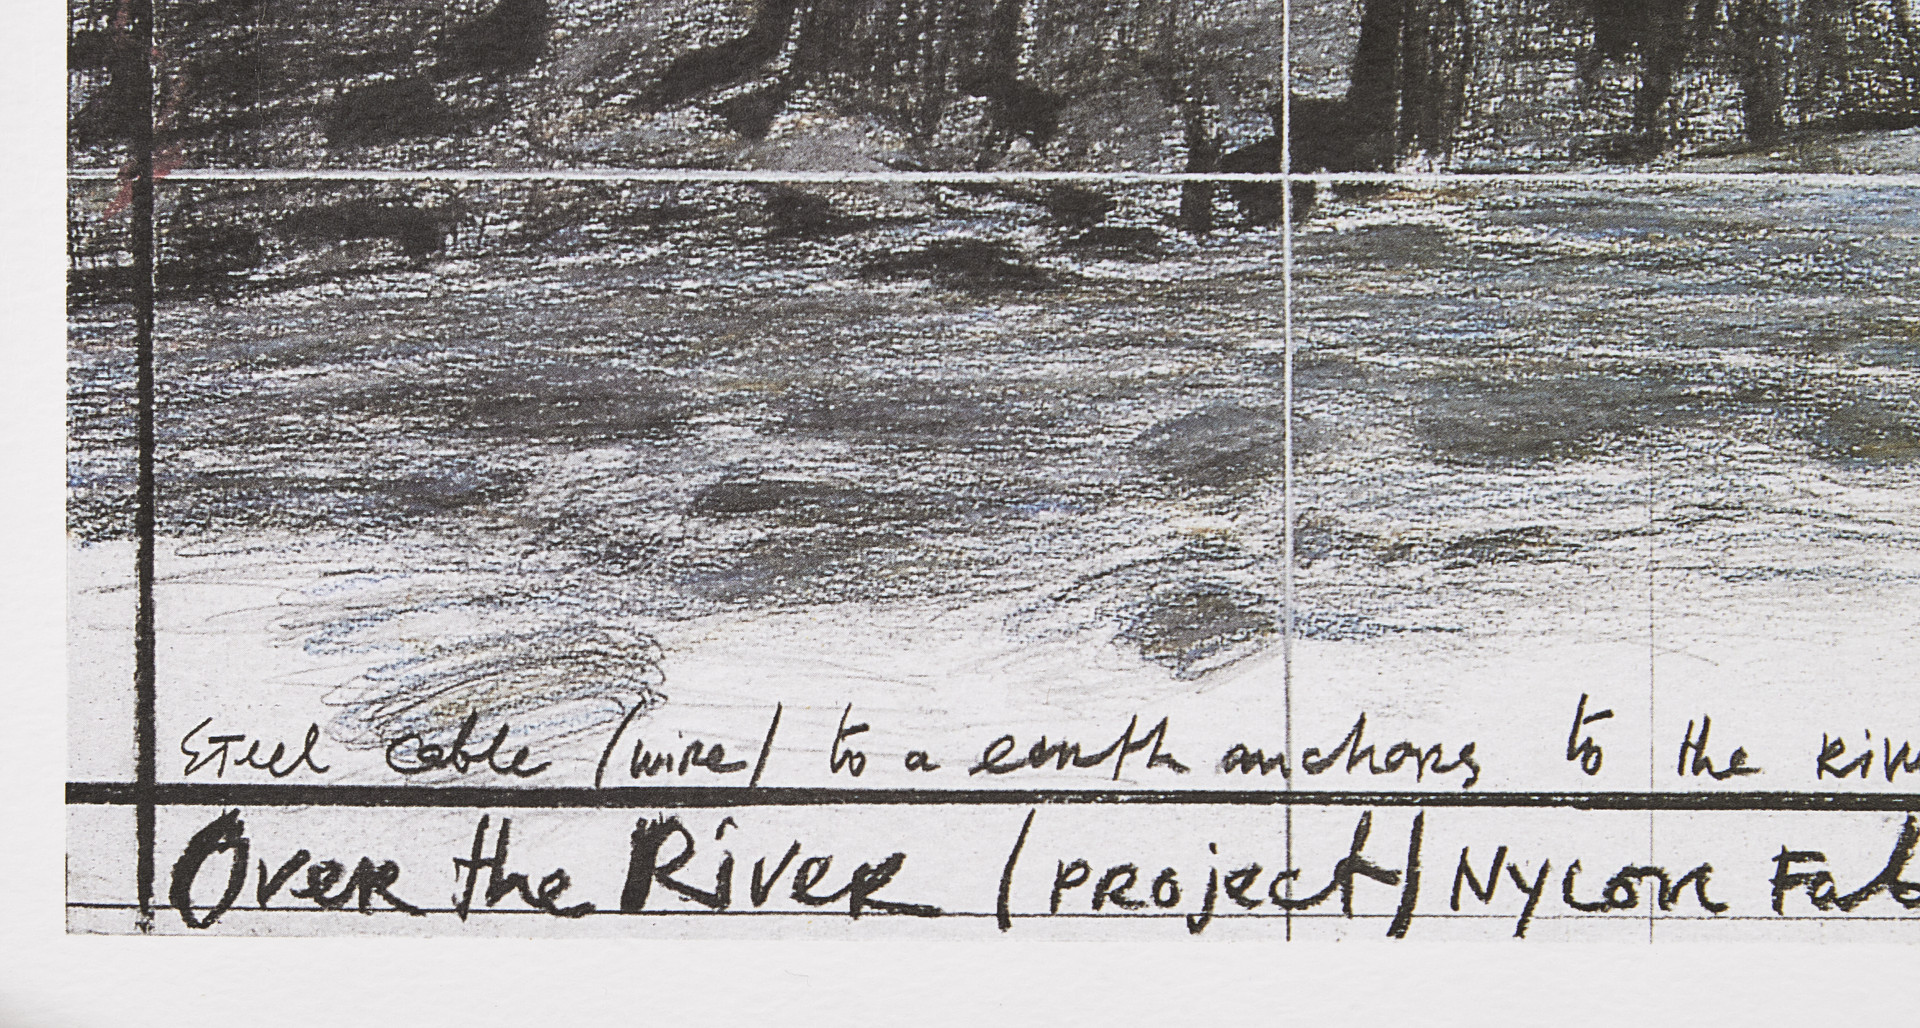 Steel cable /wire/ to a earth anchors to the Rive
Over the River /project/ Nylon Fab